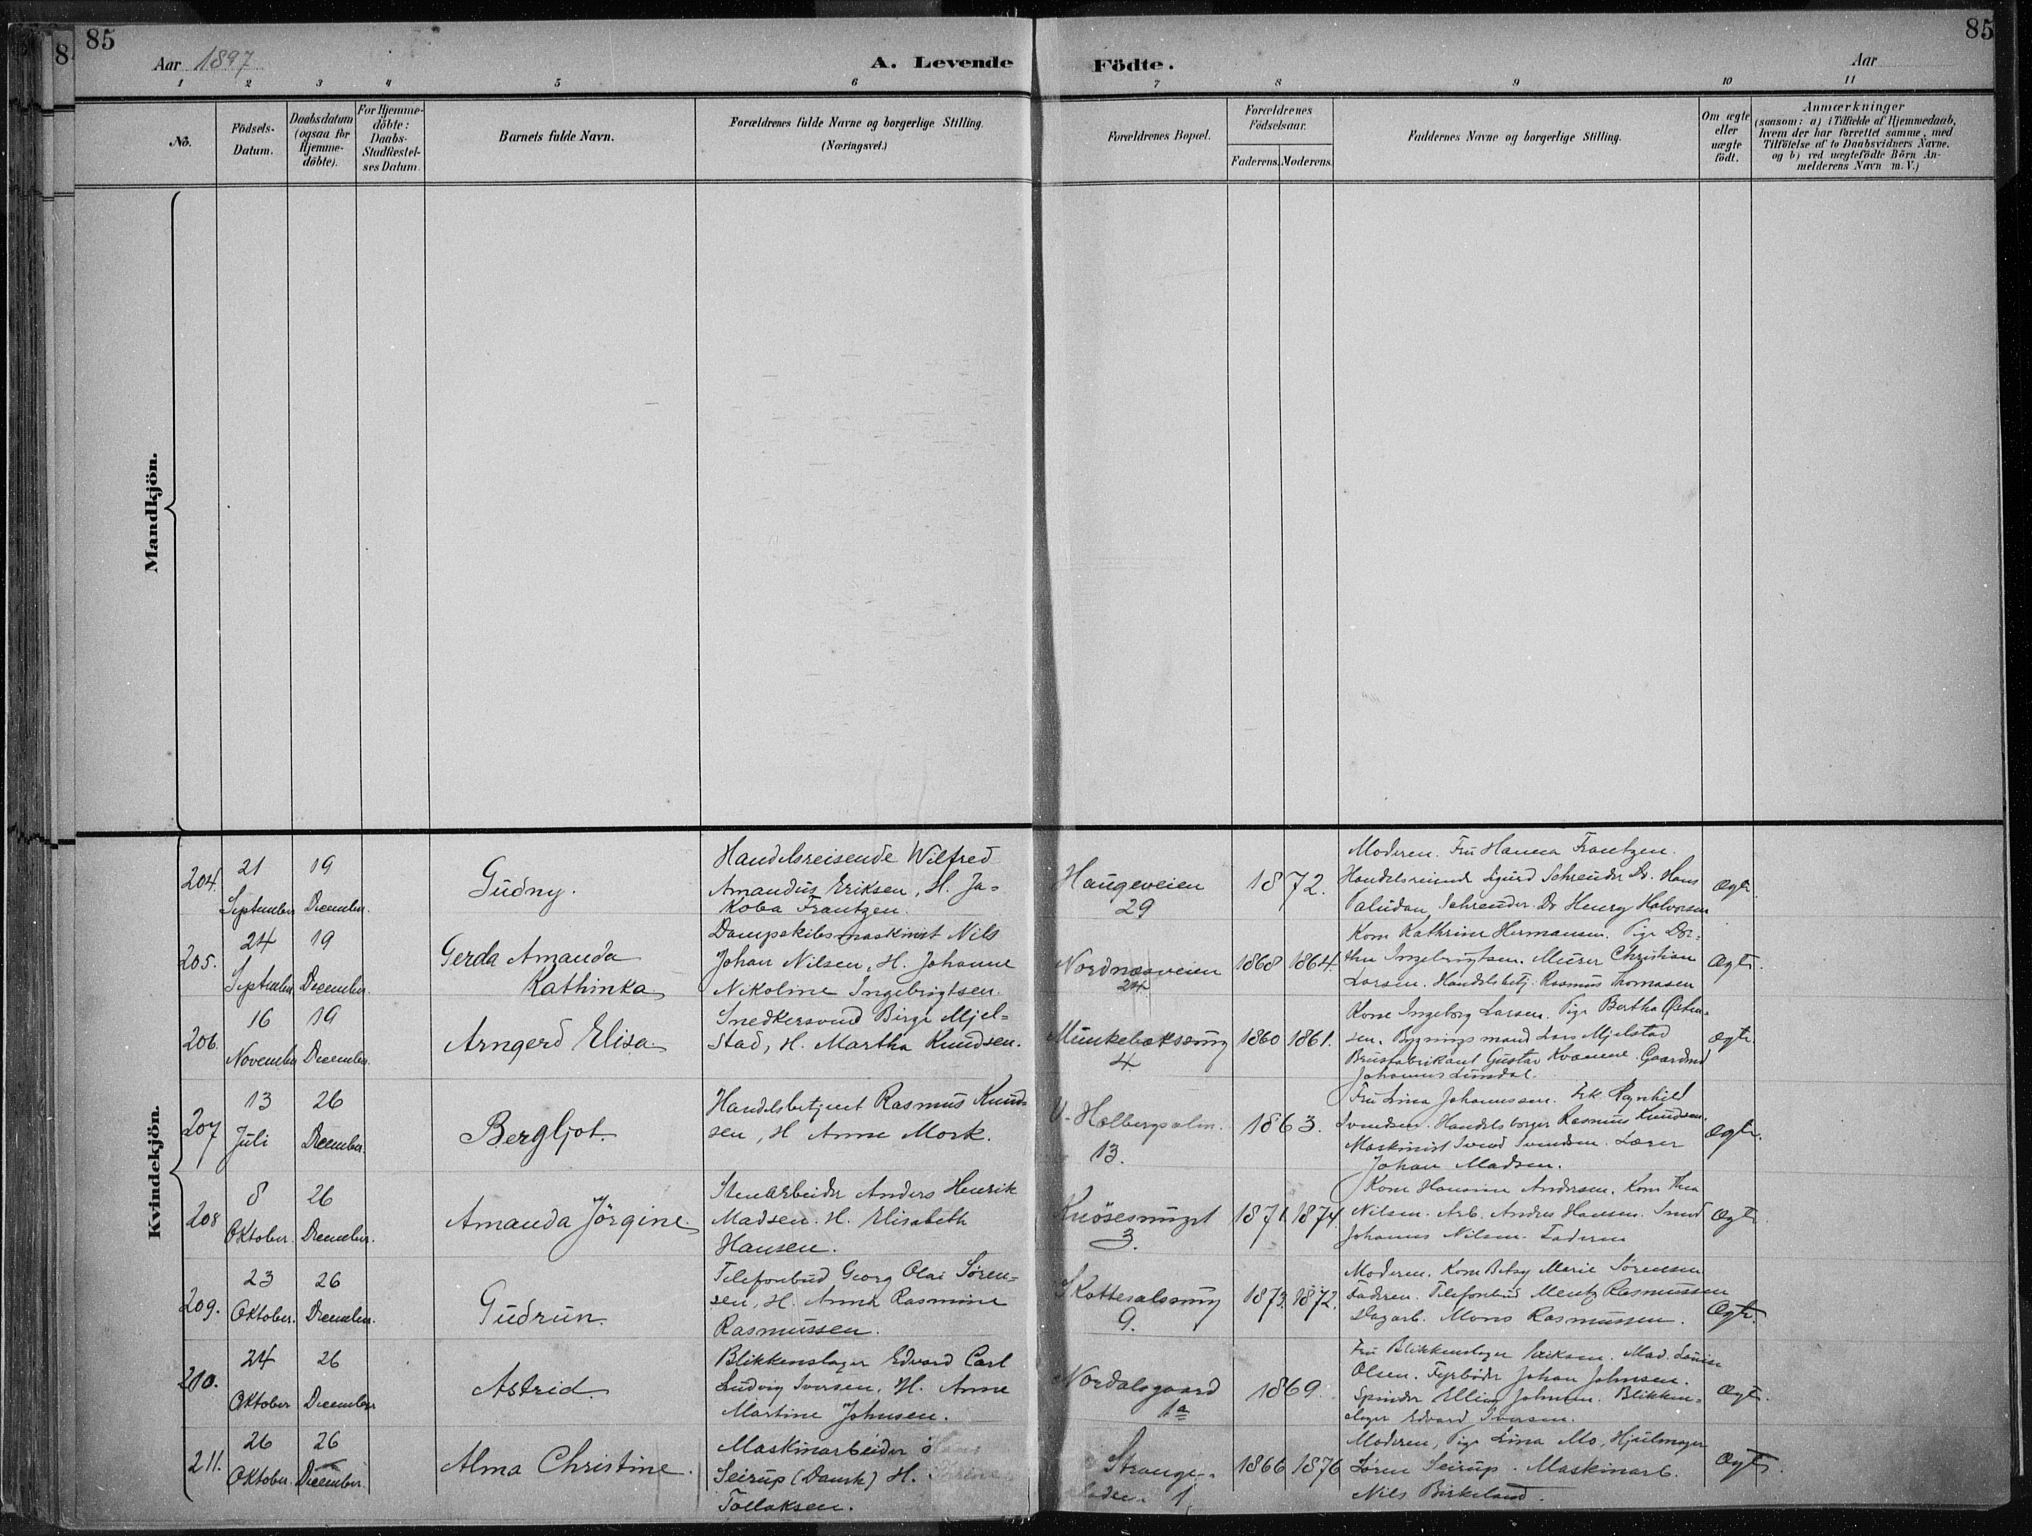 85
85
8
Aar 1897
A. Levende
Födte.
Aar
1
2
3
4
5
6
7
8
9
10
11
No.
Födsels-
Datum.
Daabsdatum
(ogsaa for
Hjemme-
döbte).
For Hjemme-
döbte:
Daabs-
Stadfæstel-
ses Datum.
Barnets fulde Navn.
Forældrenes fulde Navne og borgerlige Stilling.
(Næringsvei.)
Forældrenes Bopæl.
Forældrenes
Födselsaar.
Faderens.
Moderens.
Faddernes Navne og borgerlige Stilling.
Om ægte
eller
uægte
født.
Anmærkninger
(saasom: a) i Tilfælde af Hjemmedaab,
hvem der har forrettet samme, med
Tilföielse af to Daabsvidners Navne.
og b) ved uægtefödte Börn An-
melderens Navn m. V.)
Mandkjön.
Kvindekjön.
204.
21
September
19
December.
Gudny.
Handelsreisende Wilfred
Amandus Eriksen, H. Ja-
koba Frantzen.
Haugeveien
29
1872.
Moderen. Fru Hanna Frantzen.
Handelsreisende Sigurd Schreuder. Do. Hans
Paludan Schreuder. Do Henry Halvorsen
Ægte
205.
24
September
19
December.
Gerda Amanda
Kathinka
Dampskibsmaskinist Nils
Johan Nilsen, H. Johanne
Nikoline Ingebrigtsen.
Nordnæsveien
24
1868
1864.
Kone Kathrine Hermansen. Pige Dor-
thea Ingebrigtsen. Murer Christian
Larsen. Handelsbetj. Rasmus Thomasen
Ægte.
206.
16
November
19
December.
Arngerd Elisa.
Snedkersvend Birge Mjel-
stad, H. Martha Knudsen.
Munkebæksmug
4
1860
1861.
Kone Ingeborg Larsen. Pige Bertha
sen. Bygningsmand Lars Mjelstad
Brusfabrikant Gustav Kvamme. Gaardmd
Johannes
Ægte.
207
13
Juli
26
December.
Bergljot.
Handelsbetjent Rasmus Knud-
sen, H. Anne Mork.
V. Holbergsalm.
13.
1863.
Fru Lina Johannssen. Frk Ragnhild
Svendsen. Handelsborger Rasmus Knudsen.
Maskinist Svend Svendsen. Lærer
Johan Madsen.
Ægte.
208
8
Oktober.
26
December.
Amanda Jörgine.
Stenarbeider Anders Henrik
Madsen. H. Elisabeth
Hansen.
Knösesmuget
3.
1871.
1874.
Kone Hansine Andersen. Kone Thea
Nilsen. Arb. Andres Hansen. Smed
Johannes Nilsen. Faderen
Ægte.
209.
23
Oktober.
26
December.
Gudrun.
Telefonbud Georg Olai Søren-
sen, H. Anna Rasmine
Rasmussen.
Skottesalsmug
9.
1873.
1872.
Moderen. Kone Betsy Marie Sörensen
Faderen. Telefonbud Mentz Rasmussen
Dagarb. Mons Rasmussen.
Ægte.
210.
24
Oktober
26
December
Astrid.
Blikkenslager Edvard Carl
Ludvig Iversen. H. Anne
Martine Johnsen.
Nordalsgaard
1a
1869.
Fru Blikkenslager Eriksen. Mad. Lovise
Olsen. Fyrbøder Johan Johnsen.
Spinder Elling Johnsen. Blikken-
slager Edvard Iversen.
Ægte.
211.
26
Oktober.
26
December.
Alma Christine.
Maskinarbeider
Seirup (Dansk) H.
Tollaksen.
Strange-
1
1866
1876
Moderen, Pige Lina Mo, Hjulmager
Søren Seirup. Maskinarb.
Nils Birkeland.
Ægte.